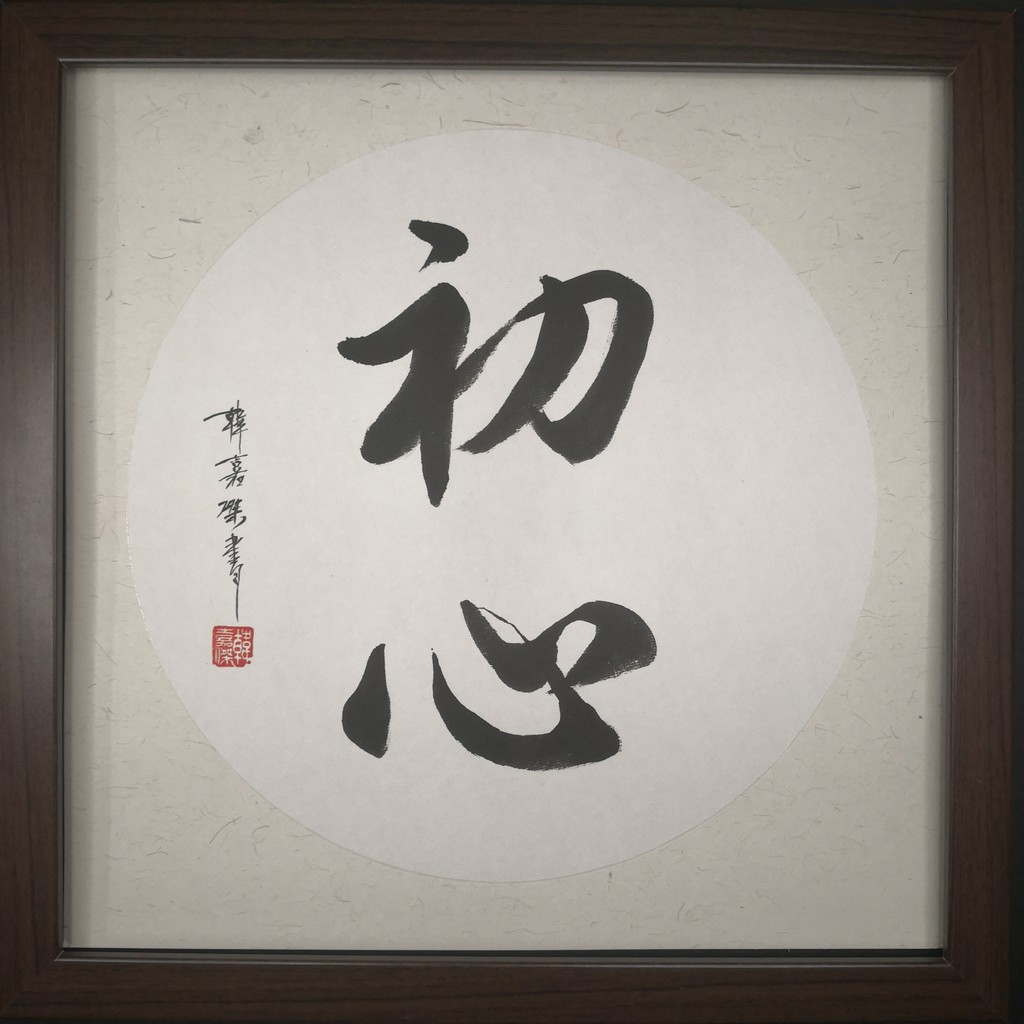 初心
韓嘉傑書
韓嘉傑